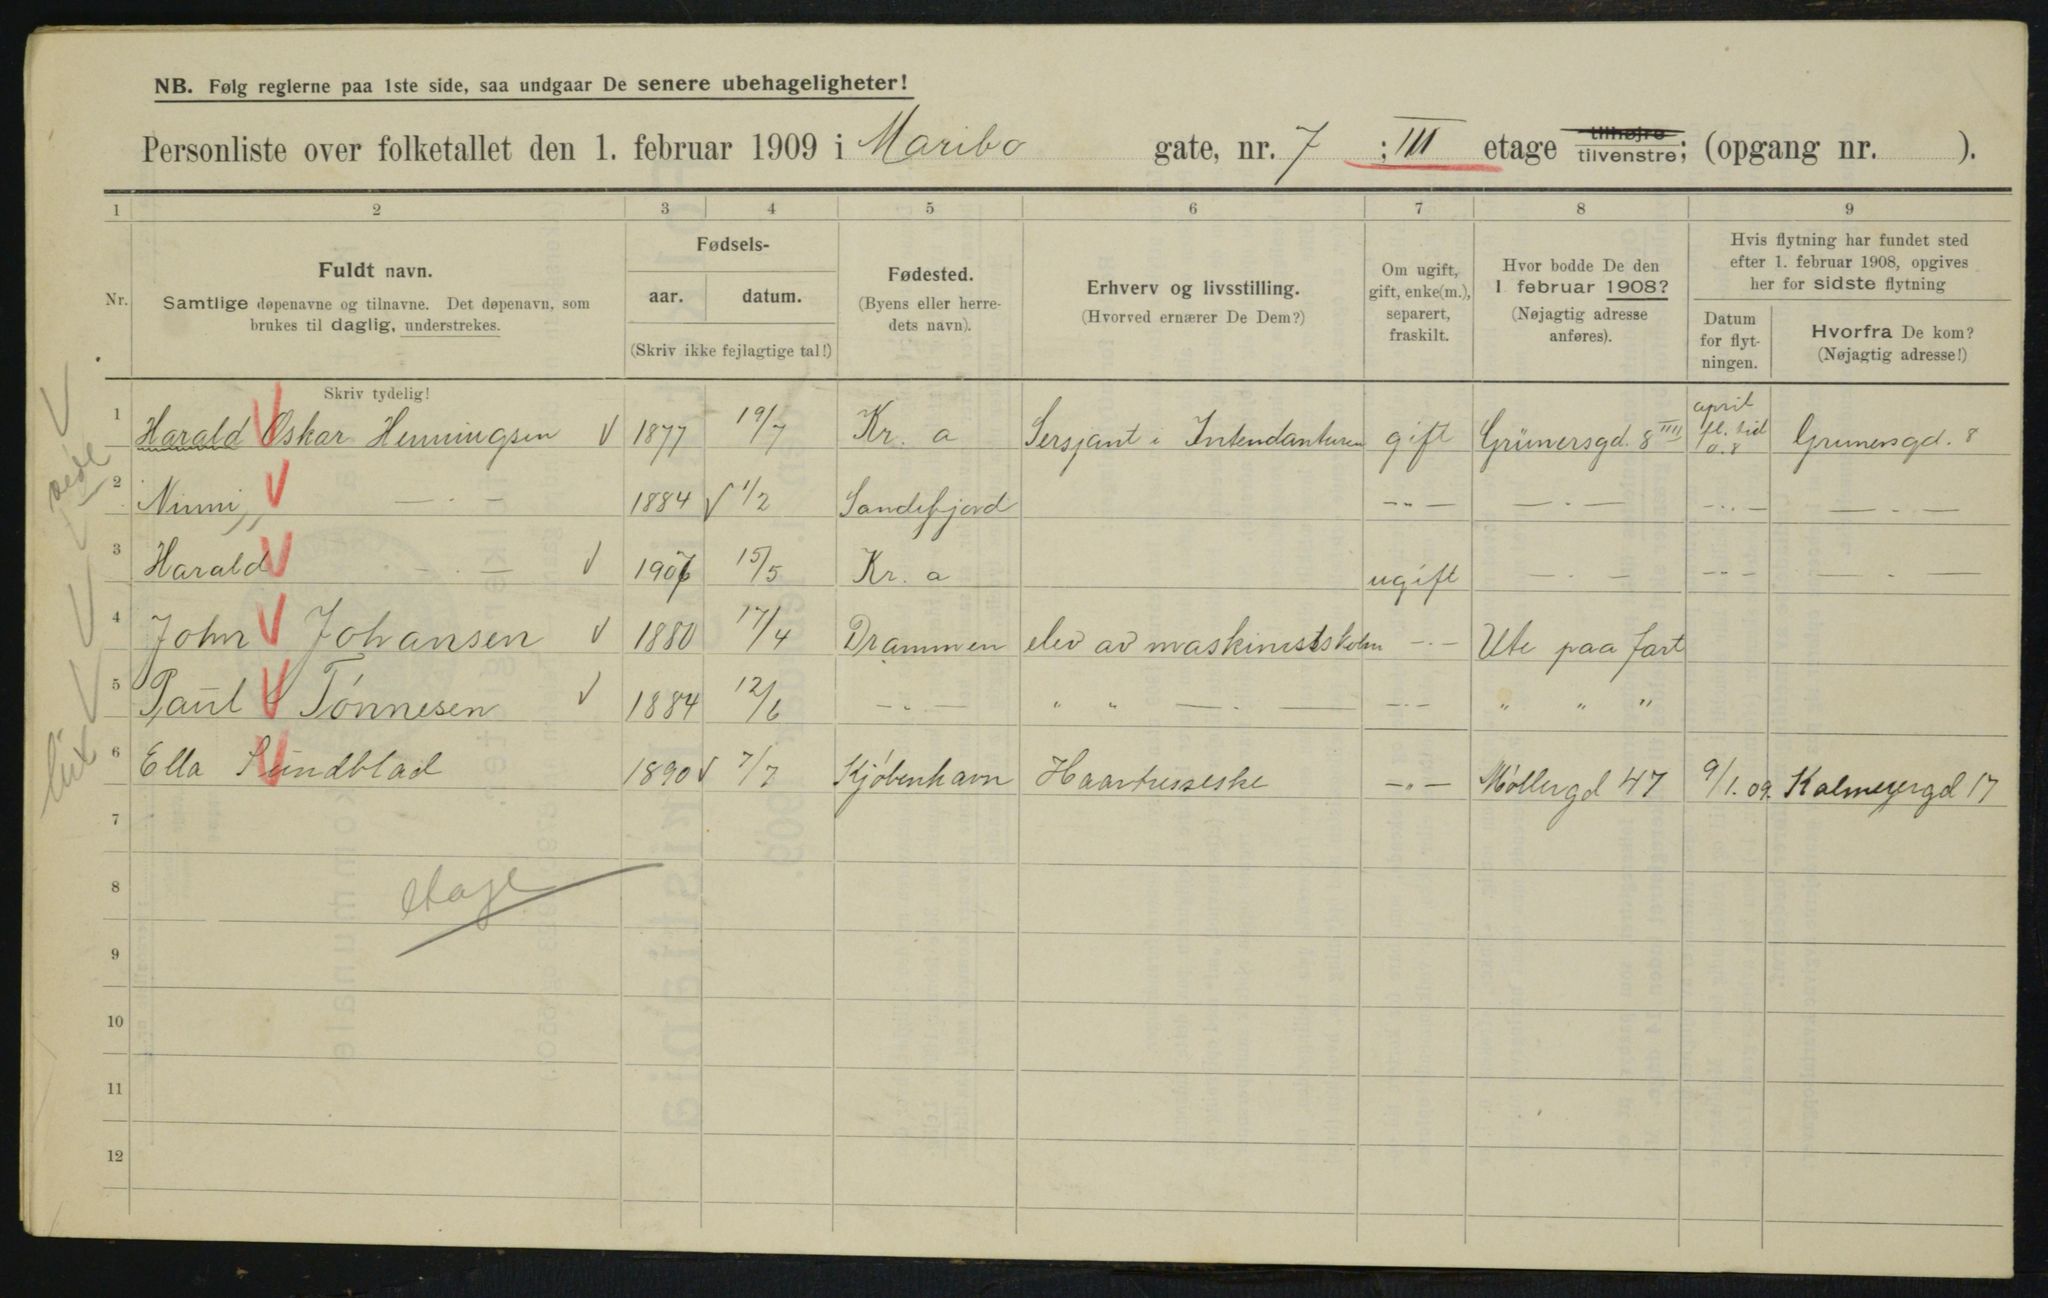 NB. Følg reglerne paa 1ste side, saa undgaar De senere ubehageligheter!
Personliste over folketallet den 1. februar 1909 i Maribo gate, nr. 7 ; III etage tilhøjre tilvenstre; (opgang nr. ).
1 2 3 4 5 6 7 8 9
Nr.
Fuldt navn.
Samtlige døpenavne og tilnavne. Det døpenavn, som
brukes til daglig, understrekes.
Skriv tydelig!
Fødsels-
aar. datum.
(Skriv ikke fejlagtige tal!)
Fødested.
(Byens eller herre-
dets navn).
Erhverv og livsstilling.
(Hvorved ernærer De Dem?)
Om ugift,
gift, enke(m.),
separert,
fraskilt.
Hvor bodde De den
1 februar 1908?
(Nøjagtig adresse
anføres).
Hvis flytning har fundet sted
efter 1. februar 1908, opgives
her for sidste flytning
Datum
for flyt-
ningen.
Hvorfra De kom?
(Nøjagtig adresse!)
1 Harald Oskar Henningsen 1877 19/7 Kr. a Sersjant i Intendanturen gift Grünersgd. 8 IIII april fl. tid 0.8 Grunersgd. 8
2 Ninni —.— 1884 1/2 Sandefjord —"— —.— —.— —.—
3 Harald —.— 15/5 Kr. a ugift —.— —.— —.—
4 John Johansen 1880 17/4 Drammen elev av maskinistskolen —.— Ute paa fart
5 Paul Tönnesen 1884 12/6 —.— " " —.— —.— " " "
6 Ella Sundblad 1890 7/7 Kjøbenhavn Haartresseske —"— Møllergd 47 9/1.09. Kalmeyergd 17
7
8
9
10
11
12